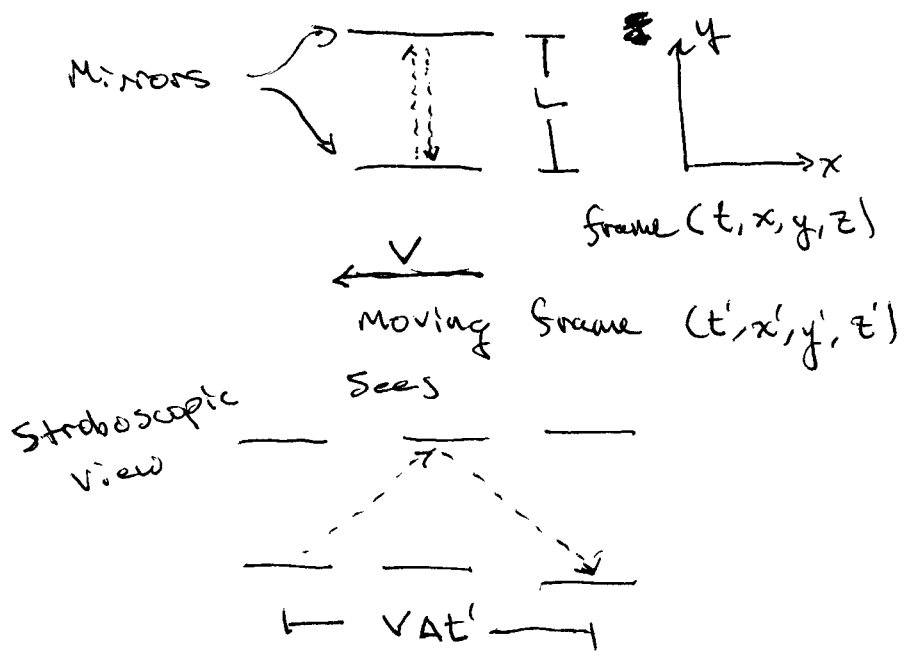 y
Mirrors
L
x
frame (t, x, y, z)
V
Moving frame (t', x', y', z')
Sees
Stroboscopic
View
VΔt'